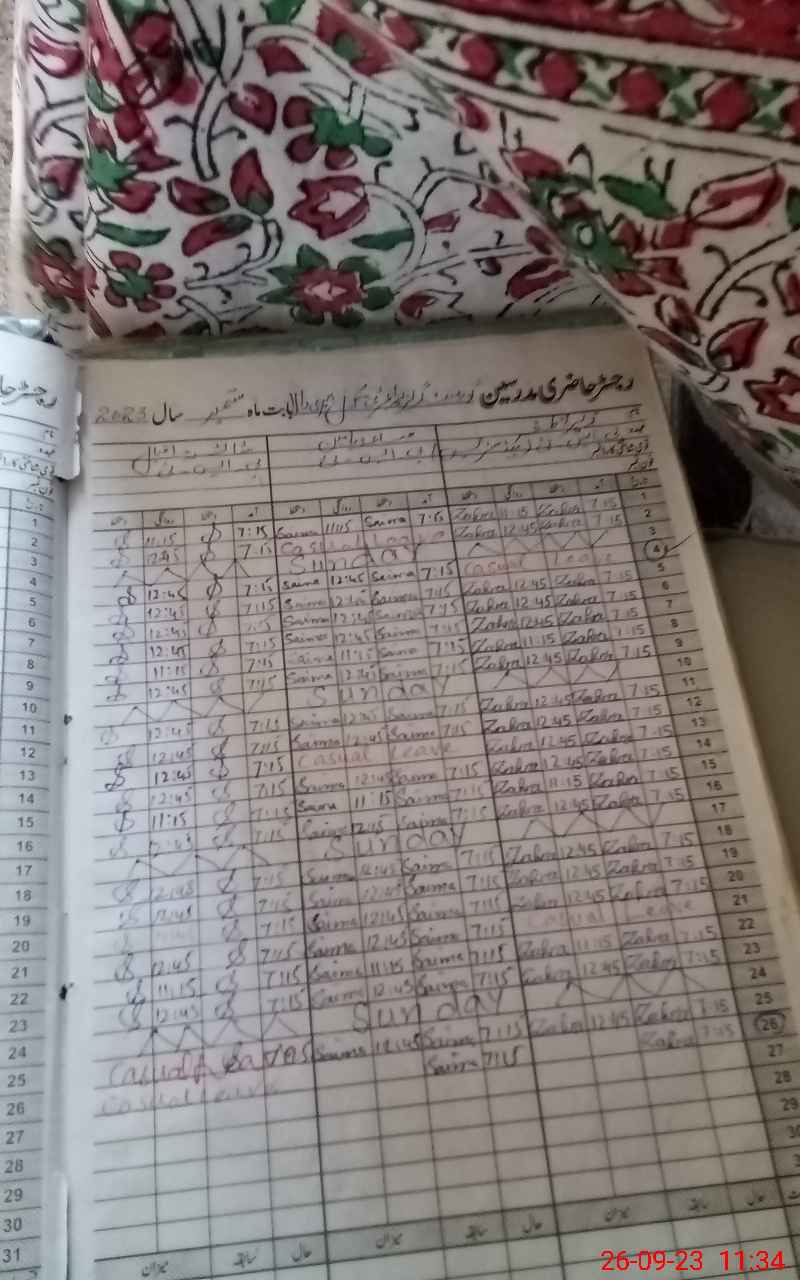 رجسٹر حاضری مدرسین بابت ماہ ستمبر سال 2023
11:15 7:15 Saima 11:15 Saima 7:15 Zahra 11:15 Zahra 7:15 1
12:45 7:15 Casual Leave Zahra 12:45 Zahra 7:15 2
Sunday 3
12:45 7:15 Saima 12:45 Saima 7:15 Casual Leave 4
12:45 7:15 Saima 12:45 Saima 7:15 Zahra 12:45 Zahra 7:15 5
12:45 7:15 Saima 12:45 Saima 7:15 Zahra 12:45 Zahra 7:15 6
12:45 7:15 Saima 12:45 Saima 7:15 Zahra 12:45 Zahra 7:15 7
11:15 7:15 Saima 11:15 Saima 7:15 Zahra 11:15 Zahra 7:15 8
12:45 7:15 Saima 12:45 Saima 7:15 Zahra 12:45 Zahra 7:15 9
Sunday 10
12:45 7:15 Saima 12:45 Saima 7:15 Zahra 12:45 Zahra 7:15 11
12:45 7:15 Saima 12:45 Saima 7:15 Zahra 12:45 Zahra 7:15 12
12:45 7:15 Casual Leave Zahra 12:45 Zahra 7:15 13
12:45 7:15 Saima 12:45 Saima 7:15 Zahra 12:45 Zahra 7:15 14
11:15 7:15 Saima 11:15 Saima 7:15 Zahra 11:15 Zahra 7:15 15
12:45 7:15 Saima 12:45 Saima 7:15 Zahra 12:45 Zahra 7:15 16
Sunday 17
12:45 7:15 Saima 12:45 Saima 7:15 Zahra 12:45 Zahra 7:15 18
12:45 7:15 Saima 12:45 Saima 7:15 Zahra 12:45 Zahra 7:15 19
7:15 Saima 12:45 Saima 7:15 Zahra 12:45 Zahra 7:15 20
12:45 7:15 Saima 12:45 Saima 7:15 Casual Leave 21
11:15 7:15 Saima 11:15 Saima 7:15 Zahra 11:15 Zahra 7:15 22
12:45 7:15 Saima 12:45 Saima 7:15 Zahra 12:45 Zahra 7:15 23
Sunday 24
Casual Saima 12:45 Saima 7:15 Zahra 12:45 Zahra 7:15 25
Casual leave Saima 7:15 Zahra 7:45 26
27
28
29
30
میزان سابقہ حال میزان سابقہ حال میزان سابقہ حال
رجسٹر حا
1
2
3
4
5
6
7
8
9
10
11
12
13
14
15
16
17
18
19
20
21
22
23
24
25
26
27
28
29
30
31
26-09-23 11:34